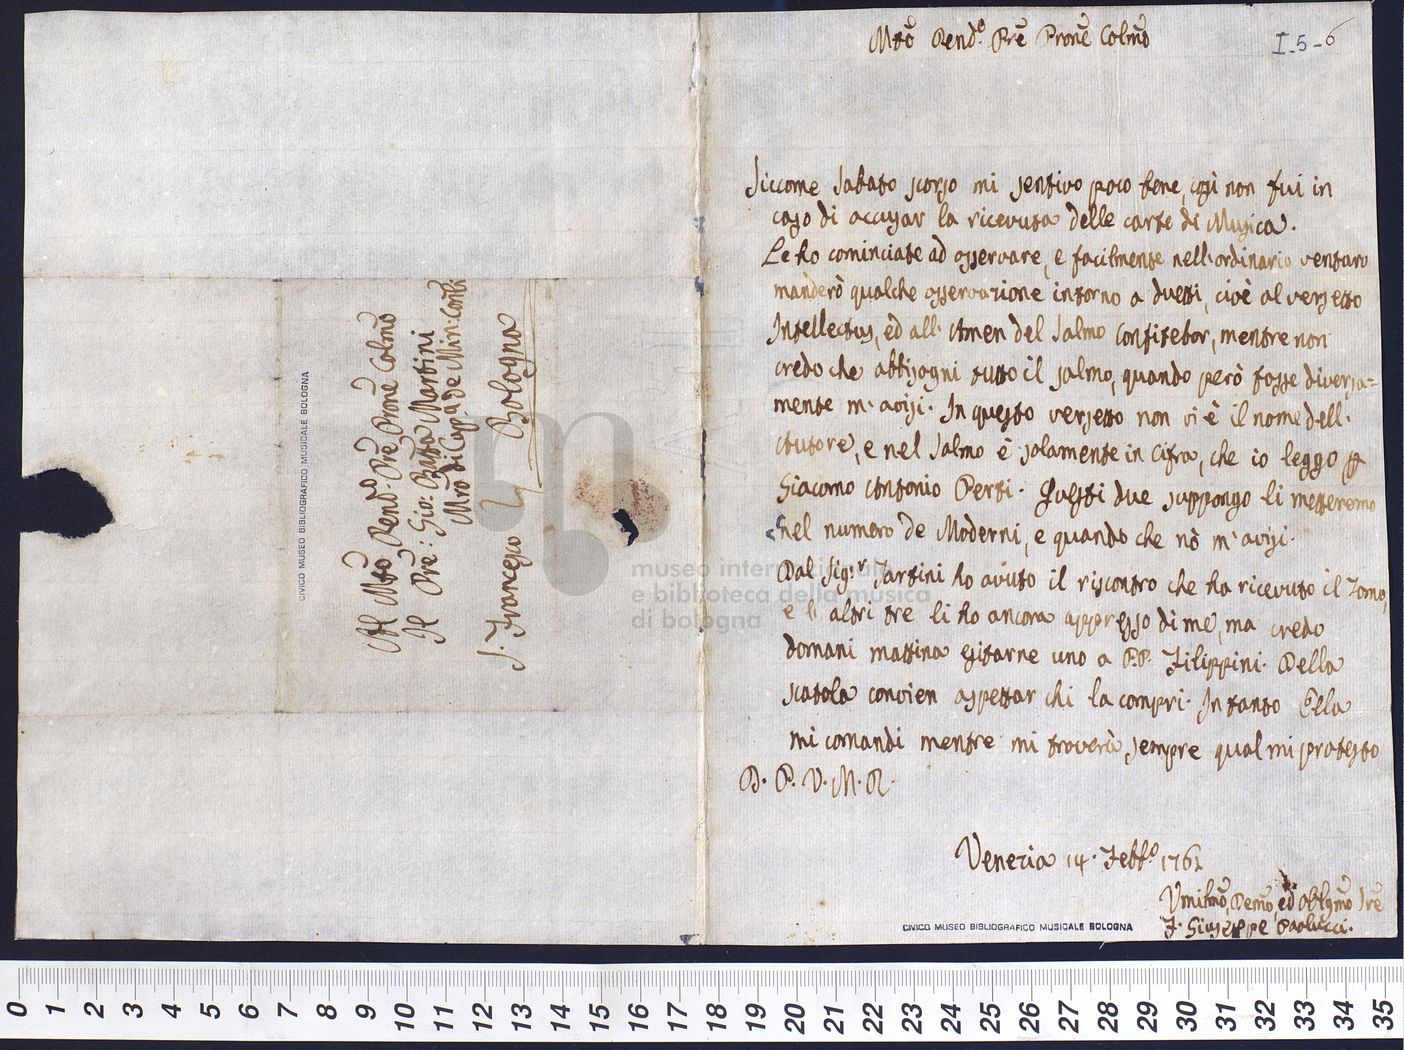 Mto Rendo. Pre Prone Colmo
I-5-6
Siccome Sabato scorso mi sentivo poco bene, così non fui in
caso di accusar la ricevuta delle carte di Musica.
Le ho cominciate ad osservare, e facilmente nell'ordinario venturo
manderò qualche osservazione intorno a questi, cioè al versetto
Intellectus, ed all' Amen del Salmo Confitebor, mentre non
credo che abbisogni tutto il salmo, quando però fosse diversa=
mente m'avisi. In questo versetto non vi è il nome dell'
Autore, e nel Salmo è solamente in Cifra, che io leggo p
Giacomo Antonio Perti. Questi due suppongo li metteremo
nel numero de Moderni, e quando che nò m'avisi.
Dal Sigr. Tartini ho avuto il riscontro che ha ricevuto il Tomo,
e li altri tre li ho ancora appresso di me, ma credo
domani mattina esitarne uno a P.P. Filippini. Della
scatola convien aspettar chi la compri. Intanto Ella
mi comandi mentre mi troverà sempre qual mi protesto
D. P. V. M. R.
Venezia 14. Febbo. 1761
Umilmo, Demo, ed Obbligmo Sre
F. Giuseppe Paolucci.
CIVICO MUSEO BIBLIOGRAFICO MUSICALE BOLOGNA
Al Mto Rendo. Pre Prone Colmo
Il Pre: Gio: Batta Martini
Mro di Capa. de Min: Conti
S. Francesco Bologna
CIVICO MUSEO BIBLIOGRAFICO MUSICALE BOLOGNA
museo internazionale
e biblioteca della musica
di bologna
0 1 2 3 4 5 6 7 8 9 10 11 12 13 14 15 16 17 18 19 20 21 22 23 24 25 26 27 28 29 30 31 32 33 34 35